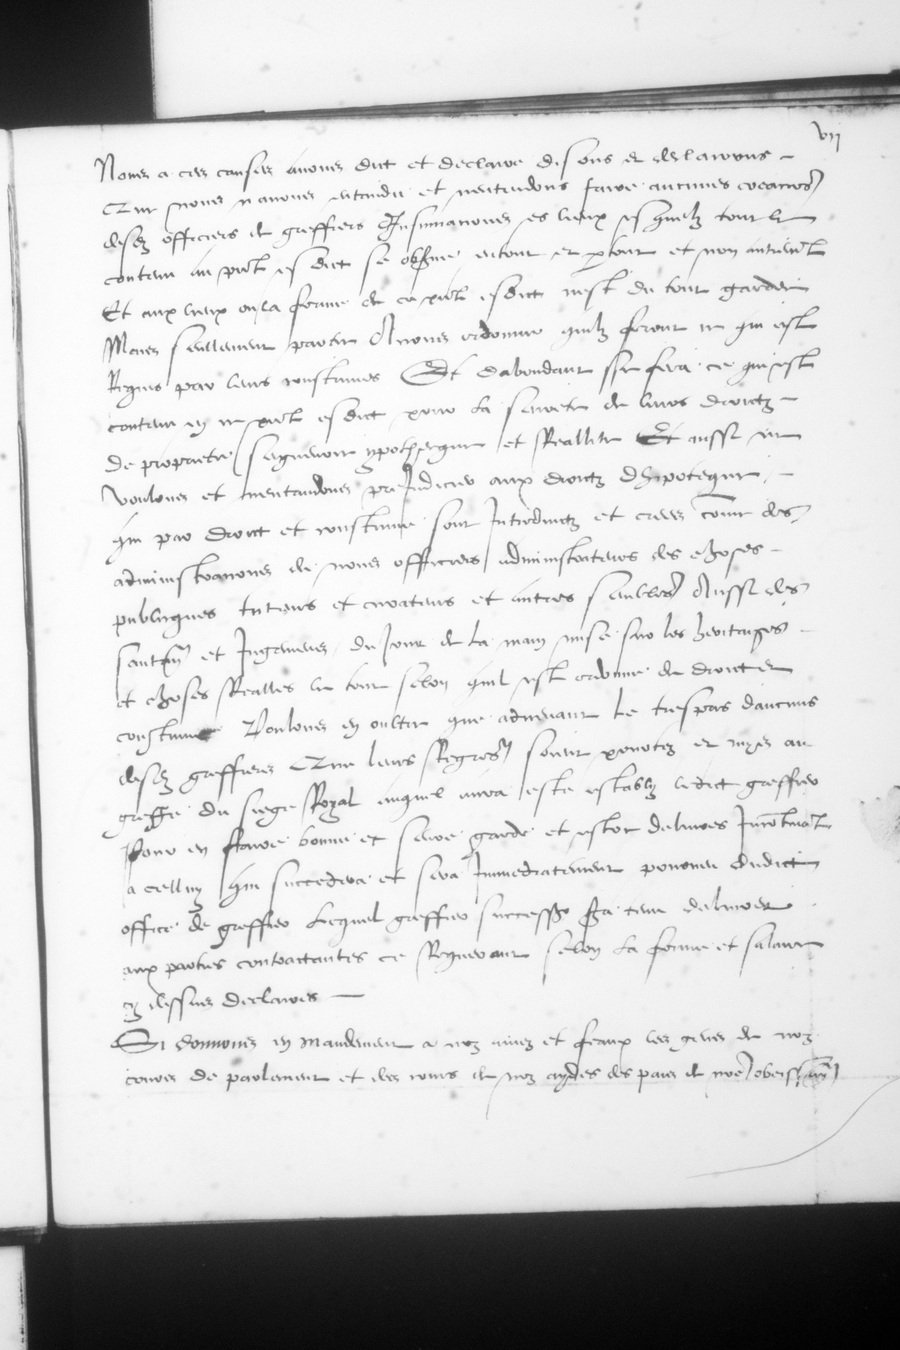 vii
Nous a ces causes avons dit et declaire disons et declairons
Que nous navons entendu et nentendons faire aucunes creations
desdz officiers de greffiers Insinuations es lieux esquelz tout le
contenu au pnt esdict se observe en tout et par tout et non autrement
Et aux lieux ou la forme de ce pnt esdict nest du tout gardee
Mais seullement partie Avons ordonne quilz feront ce qui est
Requis par leurs coustumes Et dabondant se fera ce qui est
contenu en ce pnt esdict pour la seurete de leurs droictz
de propriete seigneurie ypothecque et Reallite Et aussi ne
voulons et nentandons preiudicier aux droictz dhipotecque
qui par droict et coustume sont Introduictz et creez come des
administrations de nous officiers administrateurs des choses
publicques tuteurs et curateurs et autres semblables Aussi des
santences et Jugemens du Jour de la main mise sur les heritaiges
et choses Realles le tout selon quil est ordonne de droict et
coustume Voulons en oultre que advenant le trespas daucuns
desdz greffiers Que leurs Registres soient portez et mys au
greffe du siege Royal auquel aura este estably ledict greffier
Pour en faire bonne et seure garde et estre delivres Incontinant
a celluy qui succedera et sera Immediatement pourveu dudict
office de greffier Lequel greffier successeur sera tenu delivrer
aux parties contractantes ce Requerant selon la forme et salaire
cy dessus declaires
Si donnons en mandement a noz amez et feaulx les gens de noz
cours de parlement et des cours de noz aydes des pais de nre obeissance